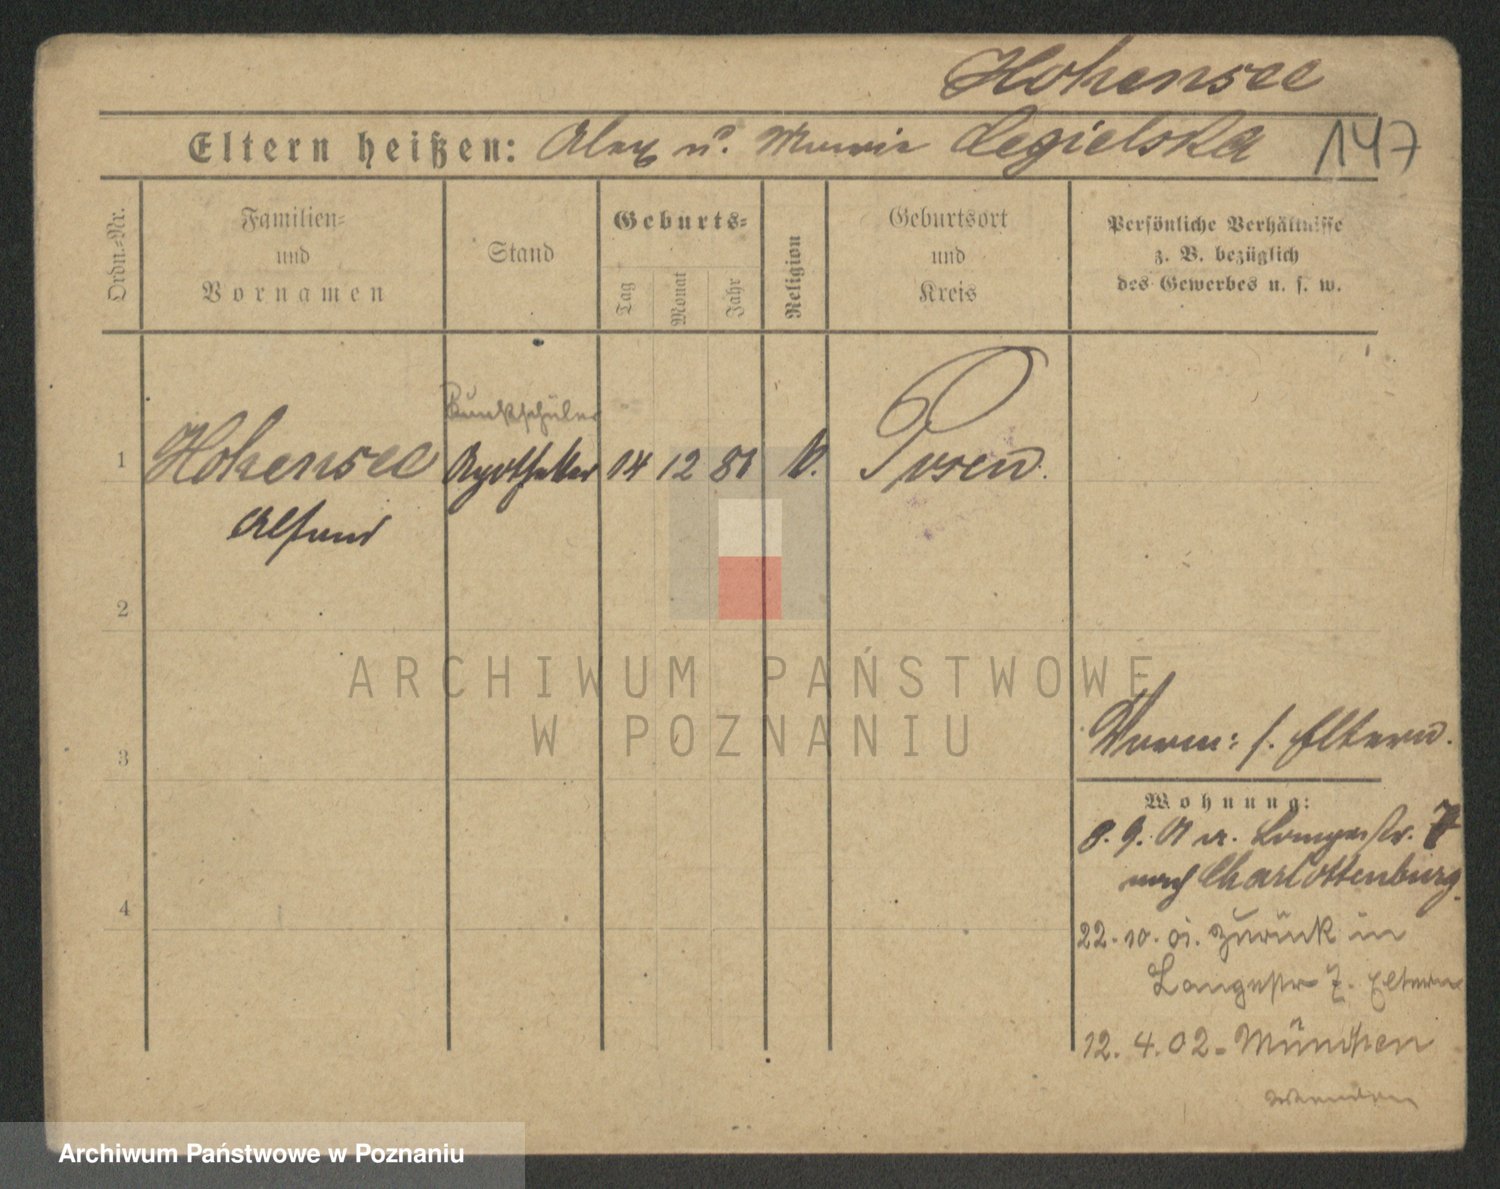 Hohensee
Eltern heißen: Alex u. Marie Cegielska 147
Ordn.-Nr.
Familien-
und
Vornamen
Stand
Geburts-
Tag
Monat
Jahr
Religion
Geburtsort
und
Kreis
Persönliche Verhältnisse
z. B. bezüglich
des Gewerbes u. s. w.
1
Hohensee
Apotheker
14 12 81
k.
Posen.
2
3
4
ARCHIWUM PAŃSTWOWE
W POZNANIU
s. Eltern.
Wohnung:
8. 9. 01 a. Langestr. 7
nach Charlottenburg.
22. 10. 01. zurück in
Langestr 7. Eltern
12. 4. 02 - München
wenden
Archiwum Państwowe w Poznaniu